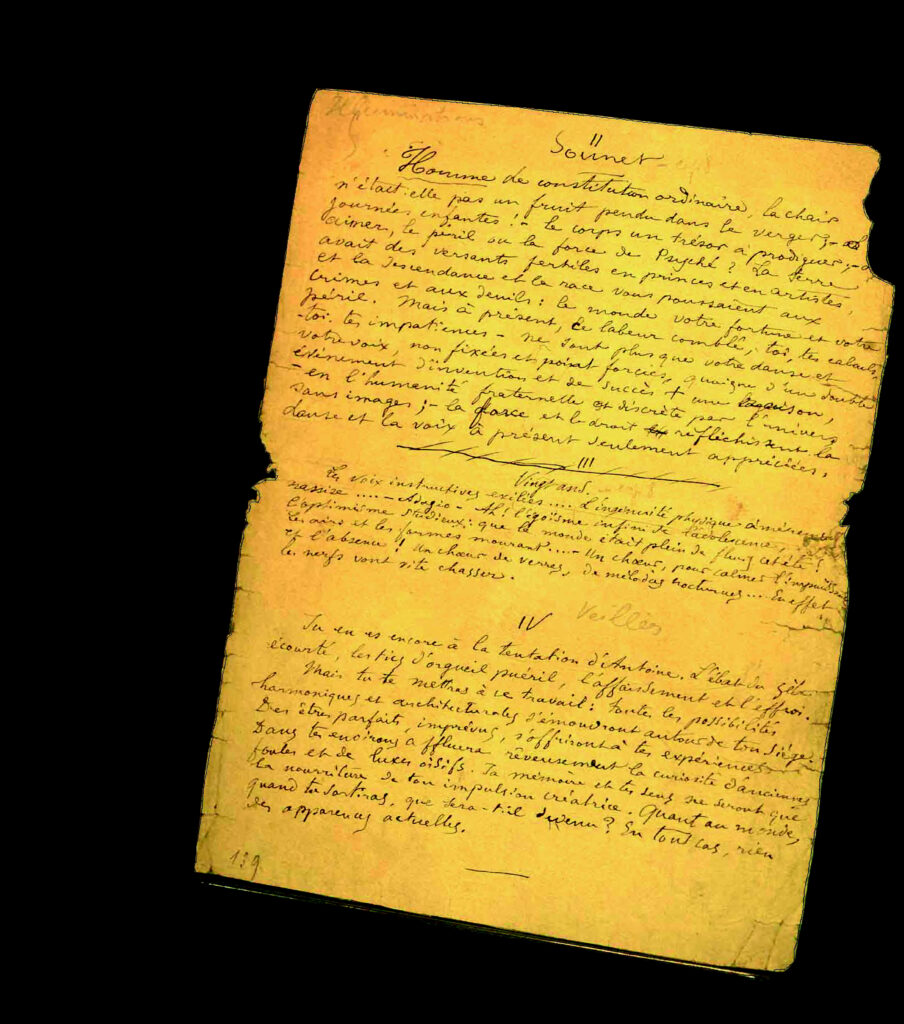 Illuminations
II
Sonnet
Homme de constitution ordinaire, la chair
n'était-elle pas un fruit pendu dans le verger ; – ô
journées enfantes ! – le corps un trésor à prodiguer ; – ô
aimer, le péril ou la force de Psyché ? La terre
avait des versants fertiles en princes et en artistes,
et la descendance et la race vous poussaient aux
crimes et aux deuils : le monde votre fortune et votre
péril. Mais à présent, ce labeur comblé, toi, tes calculs,
-toi, tes impatiences – ne sont plus que votre danse et
votre voix, non fixées et point forcées, quoique d'un double
événement d'invention et de succès + une raison,
– en l'humanité fraternelle et discrète par l'univers
sans images ; – la force et le droit réfléchissent la
danse et la voix à présent seulement appréciées.
III
Vingt ans.
Les voix instructives exilées.... L'ingénuité physique amèrement
rassise .... – Adagio – Ah ! l'égoïsme infini de l'adolescence,
l'optimisme studieux : que le monde était plein de fleurs cet été !
Les airs et les formes mourant.... – Un chœur, pour calmer l'impuissance
et l'absence ! Un chœur de verres, de mélodies nocturnes... En effet
les nerfs vont vite chasser.
IV
Veillées
Tu en es encore à la tentation d'Antoine. L'ébat du zèle
écourté, les tics d'orgueil puéril, l'affaissement et l'effroi.
Mais tu te mettras à ce travail : toutes les possibilités
harmoniques et architecturales s'émouvront autour de ton siège.
Des êtres parfaits, imprévus, s'offriront à tes expériences.
Dans tes environs affluera rêveusement la curiosité d'anciennes
foules et de luxes oisifs. Ta mémoire et tes sens ne seront que
la nourriture de ton impulsion créatrice. Quant au monde,
quand tu sortiras, que sera-t-il devenu ? En tout cas, rien
des apparences actuelles.
139